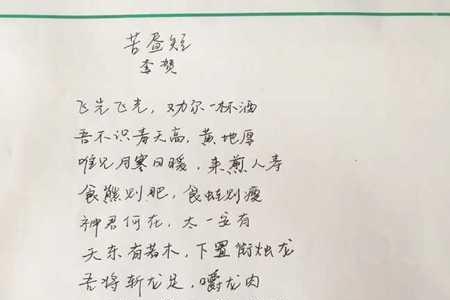 苦昼短
李贺
飞光飞光，劝尔一杯酒
吾不识青天高，黄地厚
唯见月寒日暖，来煎人寿
食熊则肥，食蛙则瘦
神君何在，太一安有
天东有若木，下置衔烛龙
吾将斩龙足，嚼龙肉